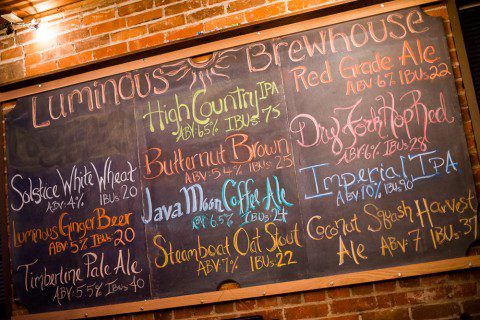 Luminous Brewhouse
Solstice White Wheat
ABV 4% IBUs 20
Luminous Ginger Beer
ABV 5% IBUs 20
Timberline Pale Ale
ABV 5.5% IBUs 40
High Country IPA
ABV 6.5% IBUs 75
Butternut Brown
ABV 5.4% IBUs 25
Java Moon Coffee Ale
ABV 6.5% IBUs 24
Steamboat Oat Stout
ABV 7% IBUs 22
Red Grade Ale
ABV 6.7% IBUs 22
Dry Fork Hop Red
ABV 6% IBUs 28
Imperial IPA
ABV 10% IBU 90
Coconut Squash Harvest
Ale ABV 7 IBUs 37